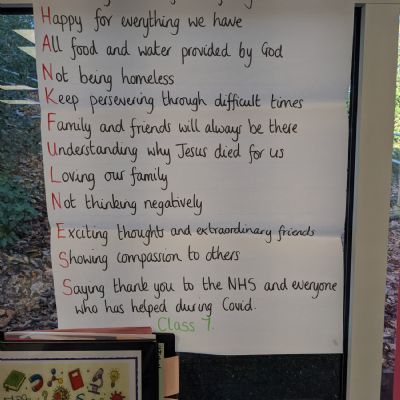 Happy for everything we have
All food and water provided by God
Not being homeless
Keep persevering through difficult times
Family and friends will always be there
Understanding why Jesus died for us
Loving our family
Not thinking negatively
Exciting thoughts and extraordinary friends
Showing compassion to others
Saying thank you to the NHS and everyone
who has helped during Covid.
Class 7.